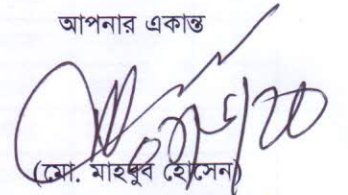 আপনার একান্ত
(মো. মাহবুব হোসেন)